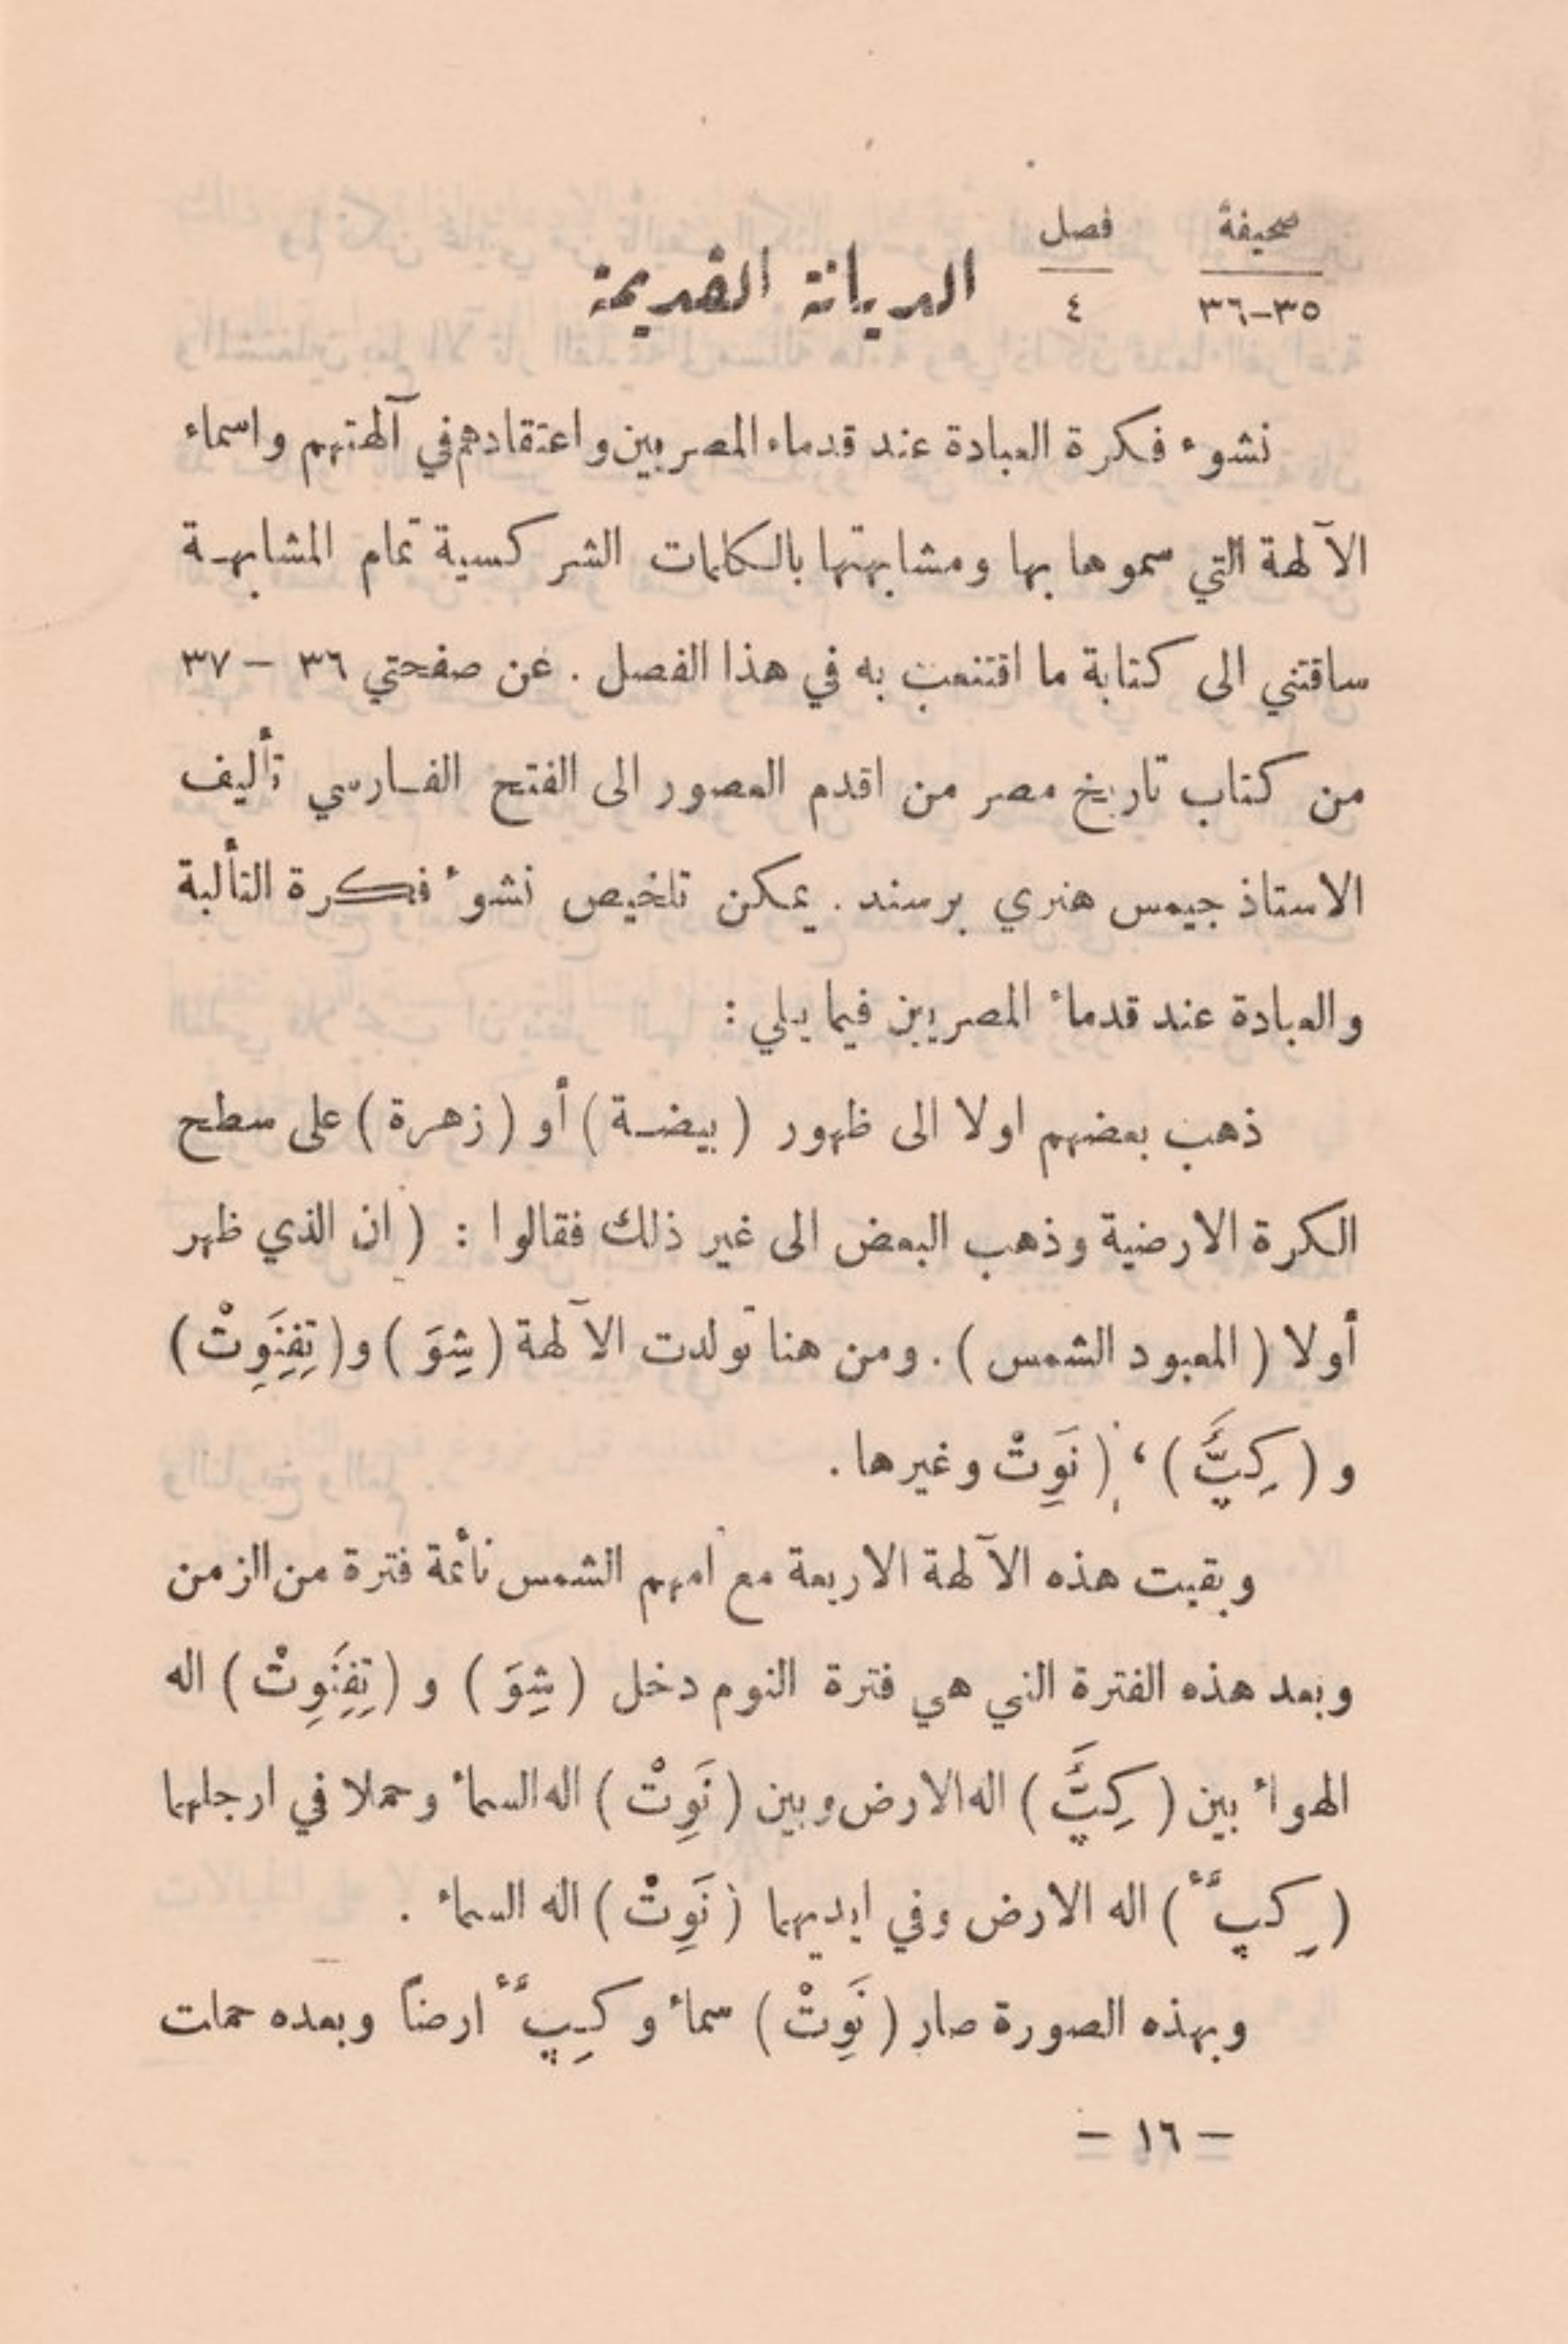 صحيفة فصل
٣٥-٣٦ ٤ الديانة القديمة
نشوء فكرة العبادة عند قدماء المصريين واعتقادهم في آلهتهم واسماء
الآلهة التي سموها بها ومشابهتها بالكلمات الشركسية تمام المشابهة
ساقتني الى كتابة ما اقتنعت به في هذا الفصل . عن صفحتي ٣٦ – ٣٧
من كتاب تاريخ مصر من اقدم العصور الى الفتح الفارسي تأليف
الاستاذ جيمس هنري برستد . يمكن تلخيص نشوء فكرة التألية
والعبادة عند قدماء المصريين فيما يلي :
ذهب بعضهم اولا الى ظهور ( بيضة ) أو ( زهرة ) على سطح
الكرة الارضية وذهب البعض الى غير ذلك فقالوا : ( ان الذي ظهر
أولا ( المعبود الشمس ) . ومن هنا تولدت الآلهة ( شِوَ ) و ( تِفِنَوِتْ )
و ( كِپَّ ) ، ( نَوِتْ وغيرها .
وبقيت هذه الآلهة الاربعة مع امهم الشمس نائمة فترة من الزمن
وبعد هذه الفترة التي هي فترة النوم دخل ( شِوَ ) و ( تِفِنَوِتْ ) اله
الهواء بين ( كِپَّ ) اله الارض وبين ( نَوِتْ ) اله السماء وحملا في ارجلهما
( كِپَّء ) اله الارض وفي ايديهما ( نَوِتْ ) اله السماء .
وبهذه الصورة صار ( نَوِتْ ) سماء و كِپَّء ارضاً وبعده حملت
– ١٦ –